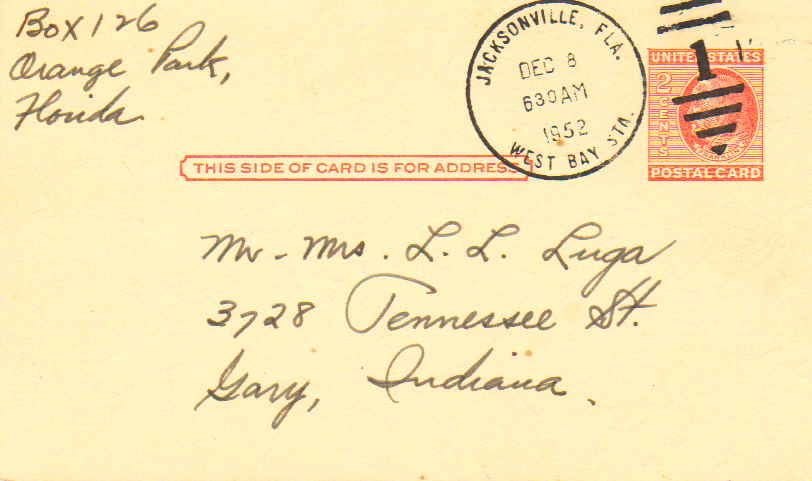 Box 126
Orange Park,
Florida
JACKSONVILLE, FLA.
DEC 8
630AM
1952
WEST BAY STA.
1
UNITED STATES
2 CENTS
POSTAL CARD
THIS SIDE OF CARD IS FOR ADDRESS
Mr - Mrs. L. L. Luga
3728 Tennessee St.
Gary, Indiana.